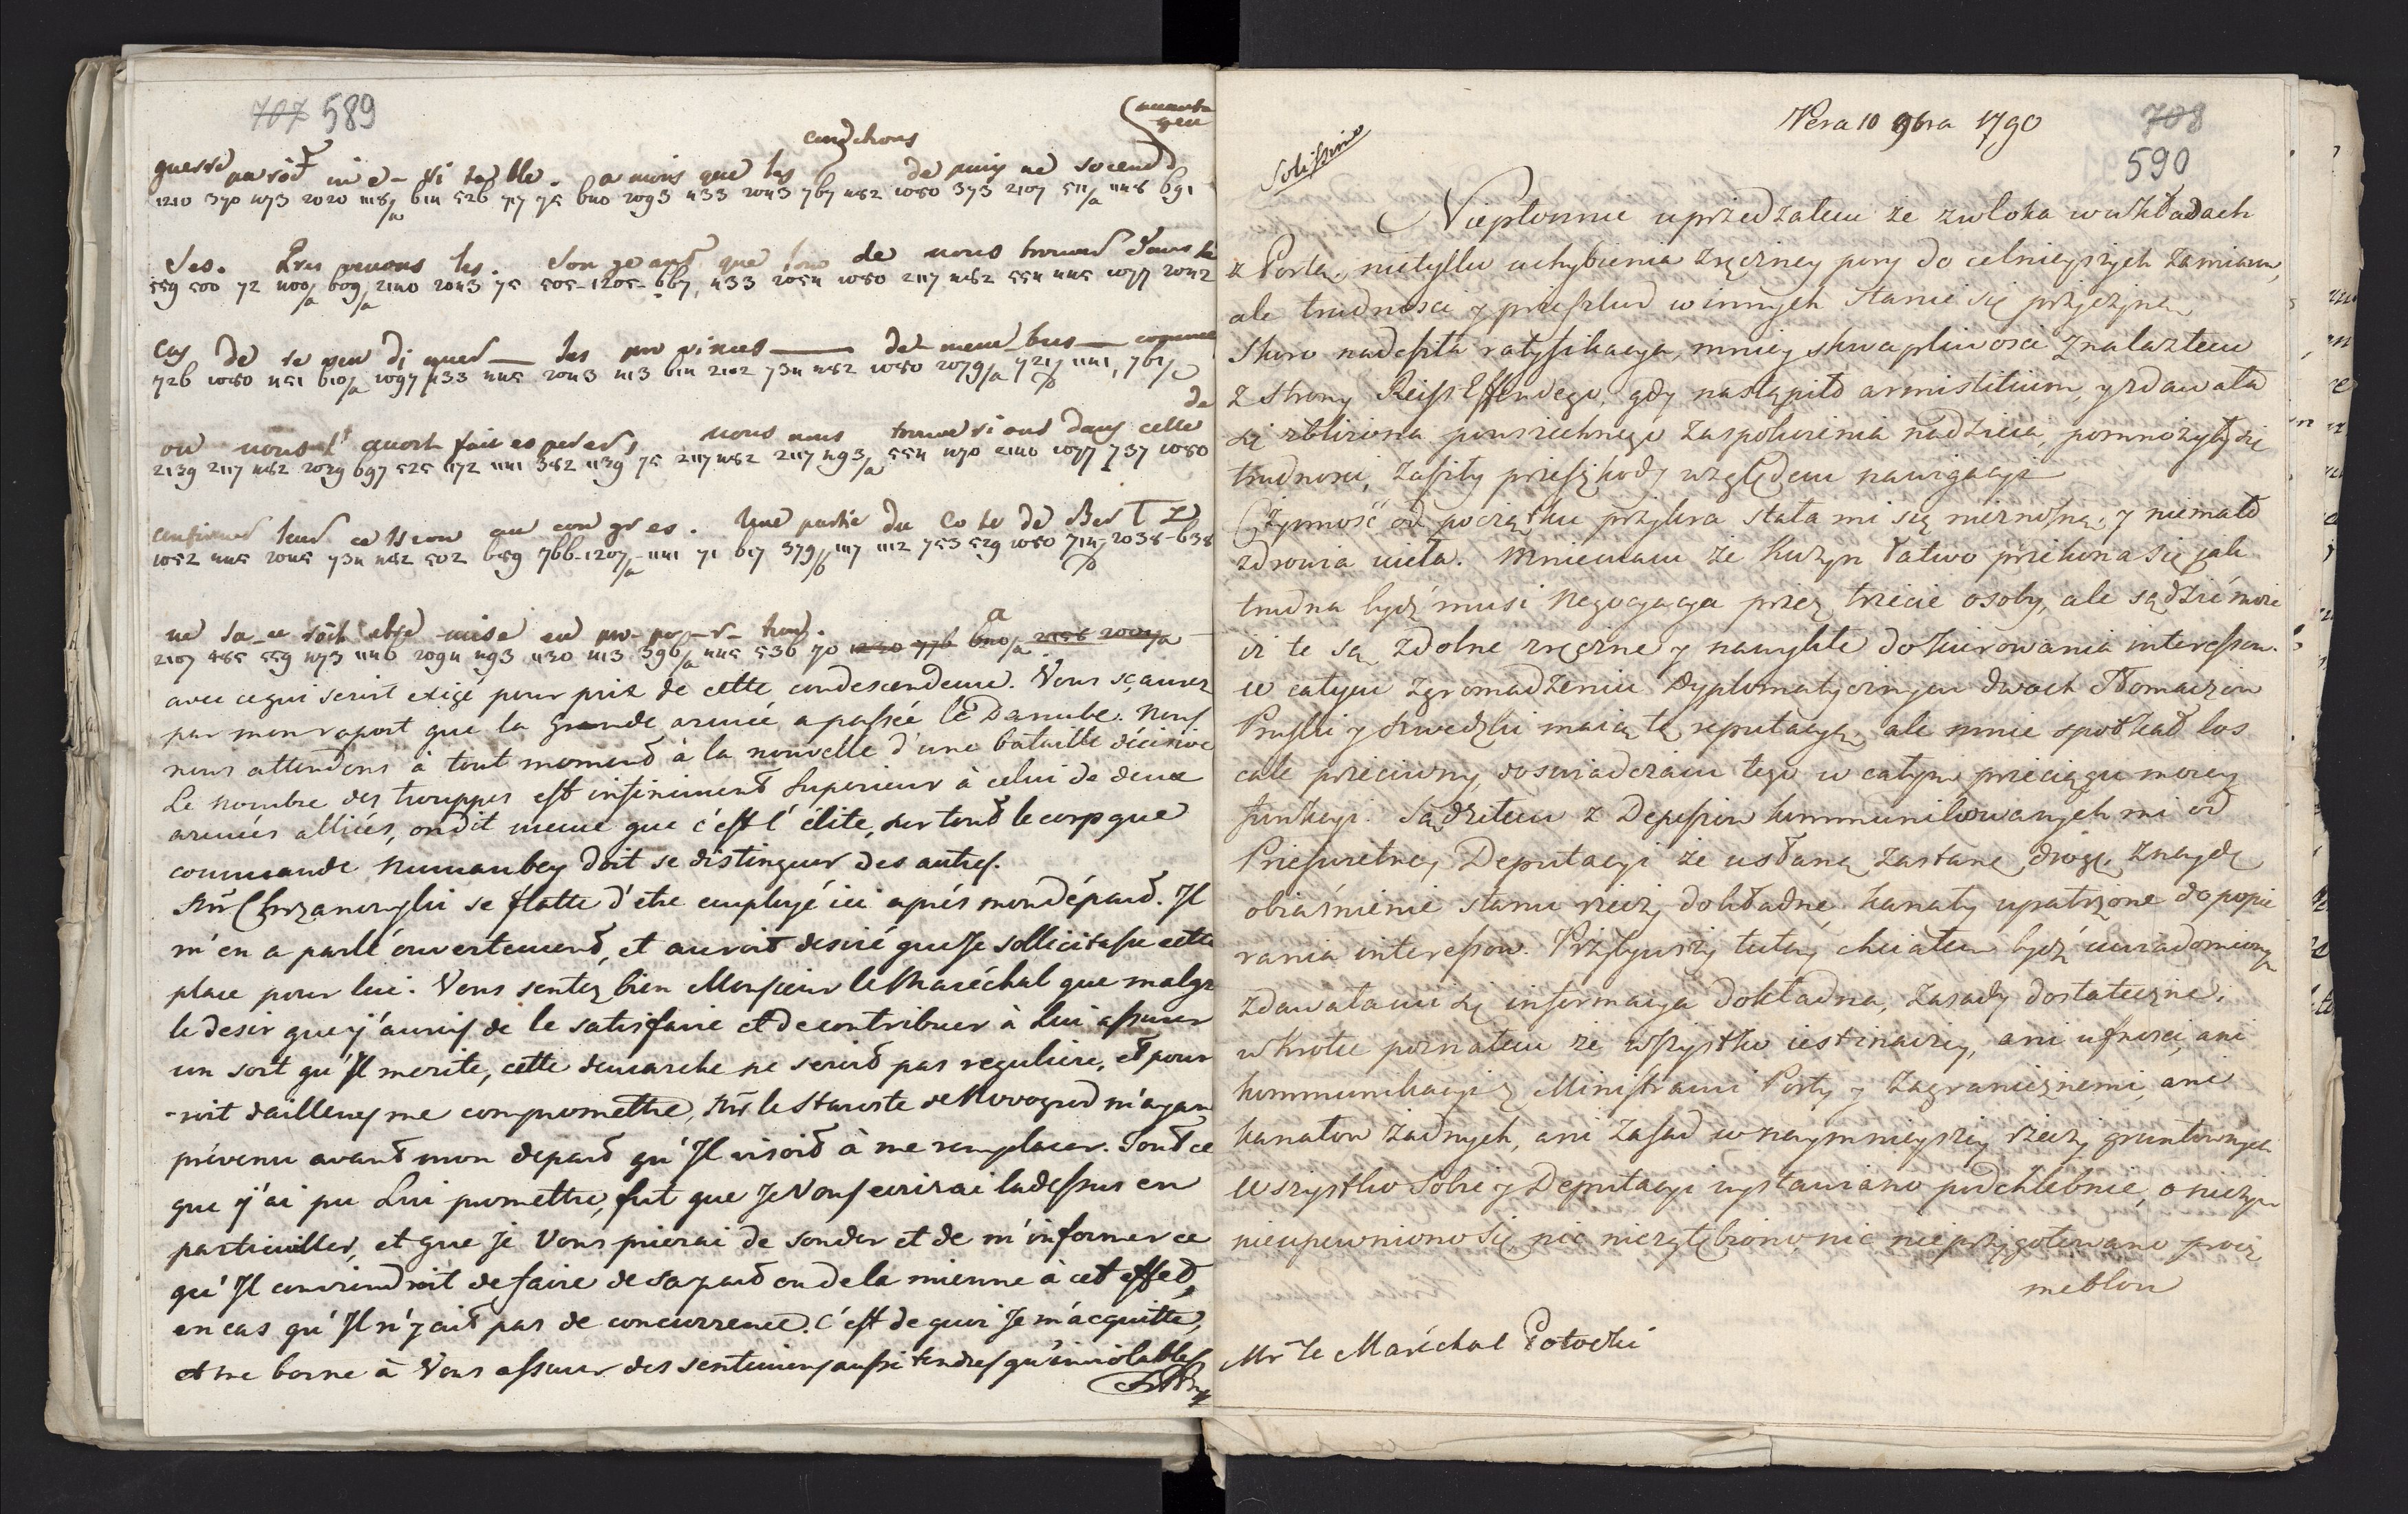 707 589
autrichiens
guerre paroît iné-vi table. a moins que les de puis ne soient
1210 370 1173 2020 1118/10 611 526 717 75 6110 2093 1133 2043 767 1152 1050 373 2107 511/a 1118 691
ses. Prevenons les. Songeant que de nous trouver dans le
559 500 72 1100/a 609/a 2110 2043 75 505-1205-667, 1133 2054 1050 2117 1152 554 1115 1077 2042
cas de re ven di quer — les pro vinces — de mem bres — comme
726 1050 1151 610/a 1097 1133 1115 2043 1113 611 2102 734 1152 1050 2079/a 721/% 1111, 761/
de
ou nous fait esperer, nous nous trouve ri ons dans celle
2139 2117 1152 2029 697 525 1172 1111 352 1139 75 2117 1152 2117 1193/a 554 1170 2110 1077 737 1050
leur ce ssion au con gr es. Une partie du Co té de Ber T Z
1052 1115 2045 734 1152 502 659 766-1207/a-1111 71 617 379/6 1117 1112 753 529 1050 714-2038-638
a
ne sa-u roit etre mise en pro-po-r-tion.
2107 485 559 1173 1146 2094 1193 1130 1113 396/a 1115 536 70
avec ce qui seroit exigé pour prix de cette condescendence. Vous sçaurez
par mon raport que la Grande armée a passée le Danube. Nous
nous attendons à tout moment à la nouvelle d'une bataille décisive
Le nombre des trouppes est infiniment superieur à celui de deux
armées alliées, on dit meme que c'est l'élite, sur tout le corp que
commande Numanbey doit se distinguer des autres.
Mr Chrzanowski se flatte d'etre employé ici après mon départ. Il
m'en a parlé ouvertement, et auroit desiré que Je sollicitasse cette
place pour lui. Vous sentez bien Monsieur le Maréchal que malgr
le desir que j'aurois de le satisfaire et de contribuer à Lui assurer
un sort qu'Il merite, cette demarche ne seroit pas reguliere, et pour
-roit dailleurs me compromettre, Mr le Staroste de Novogrod m'ayan
prévenu avant mon depart qu'Il visoit à me remplacer. Tout ce
que j'ai pu Lui promettre, fut que Je Vous ecrirai ladessus en
particuiller, et que je Vous prierai de sonder et de m'informer ce
qu'Il conviendroit de faire de sa part ou de la mienne à cet effet,
en cas qu'Il n'y ait pas de concurrence. C'est de quoi Je m'acquitte,
et me borne à Vous assurer des sentimens aussi tendres qu'inviolables
Pera 10 9bra 1790
708
590
Solissimo
Niepłonnie uprzedzałem że zwłoka w układach
z Portą, nietylko uchybienia zręczney pory do celnieyszych zamiarow,
ale trudności y przeszkod w innych stanie się przyczyną
Skoro nadeszła ratyfikacya, mniey skwapliwości znalazłem
z strony Reiss Effendego, gdy nastąpiło armistitium, y zdawała
się zbliżona powszechnego zaspokoienia nadzieia, pomnożyły się
trudności, zaszły przeszkody względem nawigacyi
Czynność od początku przykra stała mi się nieznośną, y niemało
zdrowia uieła. Mniemam że Kuzyn łatwo przekona się jak
trudna bydź musi Negocyacya przez trzecie osoby, ale sądzić może
iż te są zdolne zręczne y nawykłe do kierowania interessow.
w całym zgromadzeniu Dyplomatycznym dwoch Tłomaczow
Pruski y Szwedzki maią tę reputacyą, ale mnie spotkał los
cale przeciwny, doswiadczam tego w całym przeciągu moiey
funkcyi. Sądziłem z Depeszow kommunikowanych mi od
Prześwietney Deputacyi że usłaną zastanę drogę, znaydę
obiaśnienie stanu rzeczy dokładne kanały upatrzone do popie
rania interessow. Przybywszy tutey chciałem bydź uwiadomionym
zdawałami się informacya dokładna, zasady dostateczne.
wkrotce poznałem że wszystko iest inaczey, ani ufności, ani
kommunikacyi z Ministrami Porty y Zagranicznemi, ani
kanałow żadnych, ani zasad w naymnieyszey rzeczy gruntownych
wszystko Sobie y Deputacyi wystawiano podchlebnie, o niczym
nieupewniono się nic niezgłębiono, nic nie przygotowano procz
meblow
Mr le Maréchal Potocki